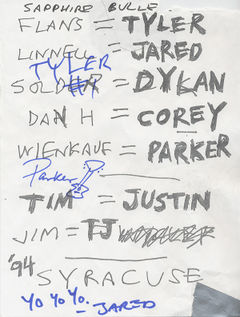 SAPPHIRE BULLE
FLANS = TYLER
LINNELL = JARED
TYLER
= DYLAN
DAN H = COREY
WIENKAUF = PARKER
Parker
TIM = JUSTIN
JIM = TJ
'94
SYRACUSE
YO YO YO.
- JARED